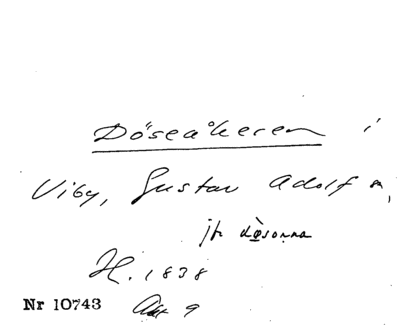 Döseåkeren i
Viby, Gustav Adolf n,
jfr dösorna
H. 1838
Nr 10743 Akt 9